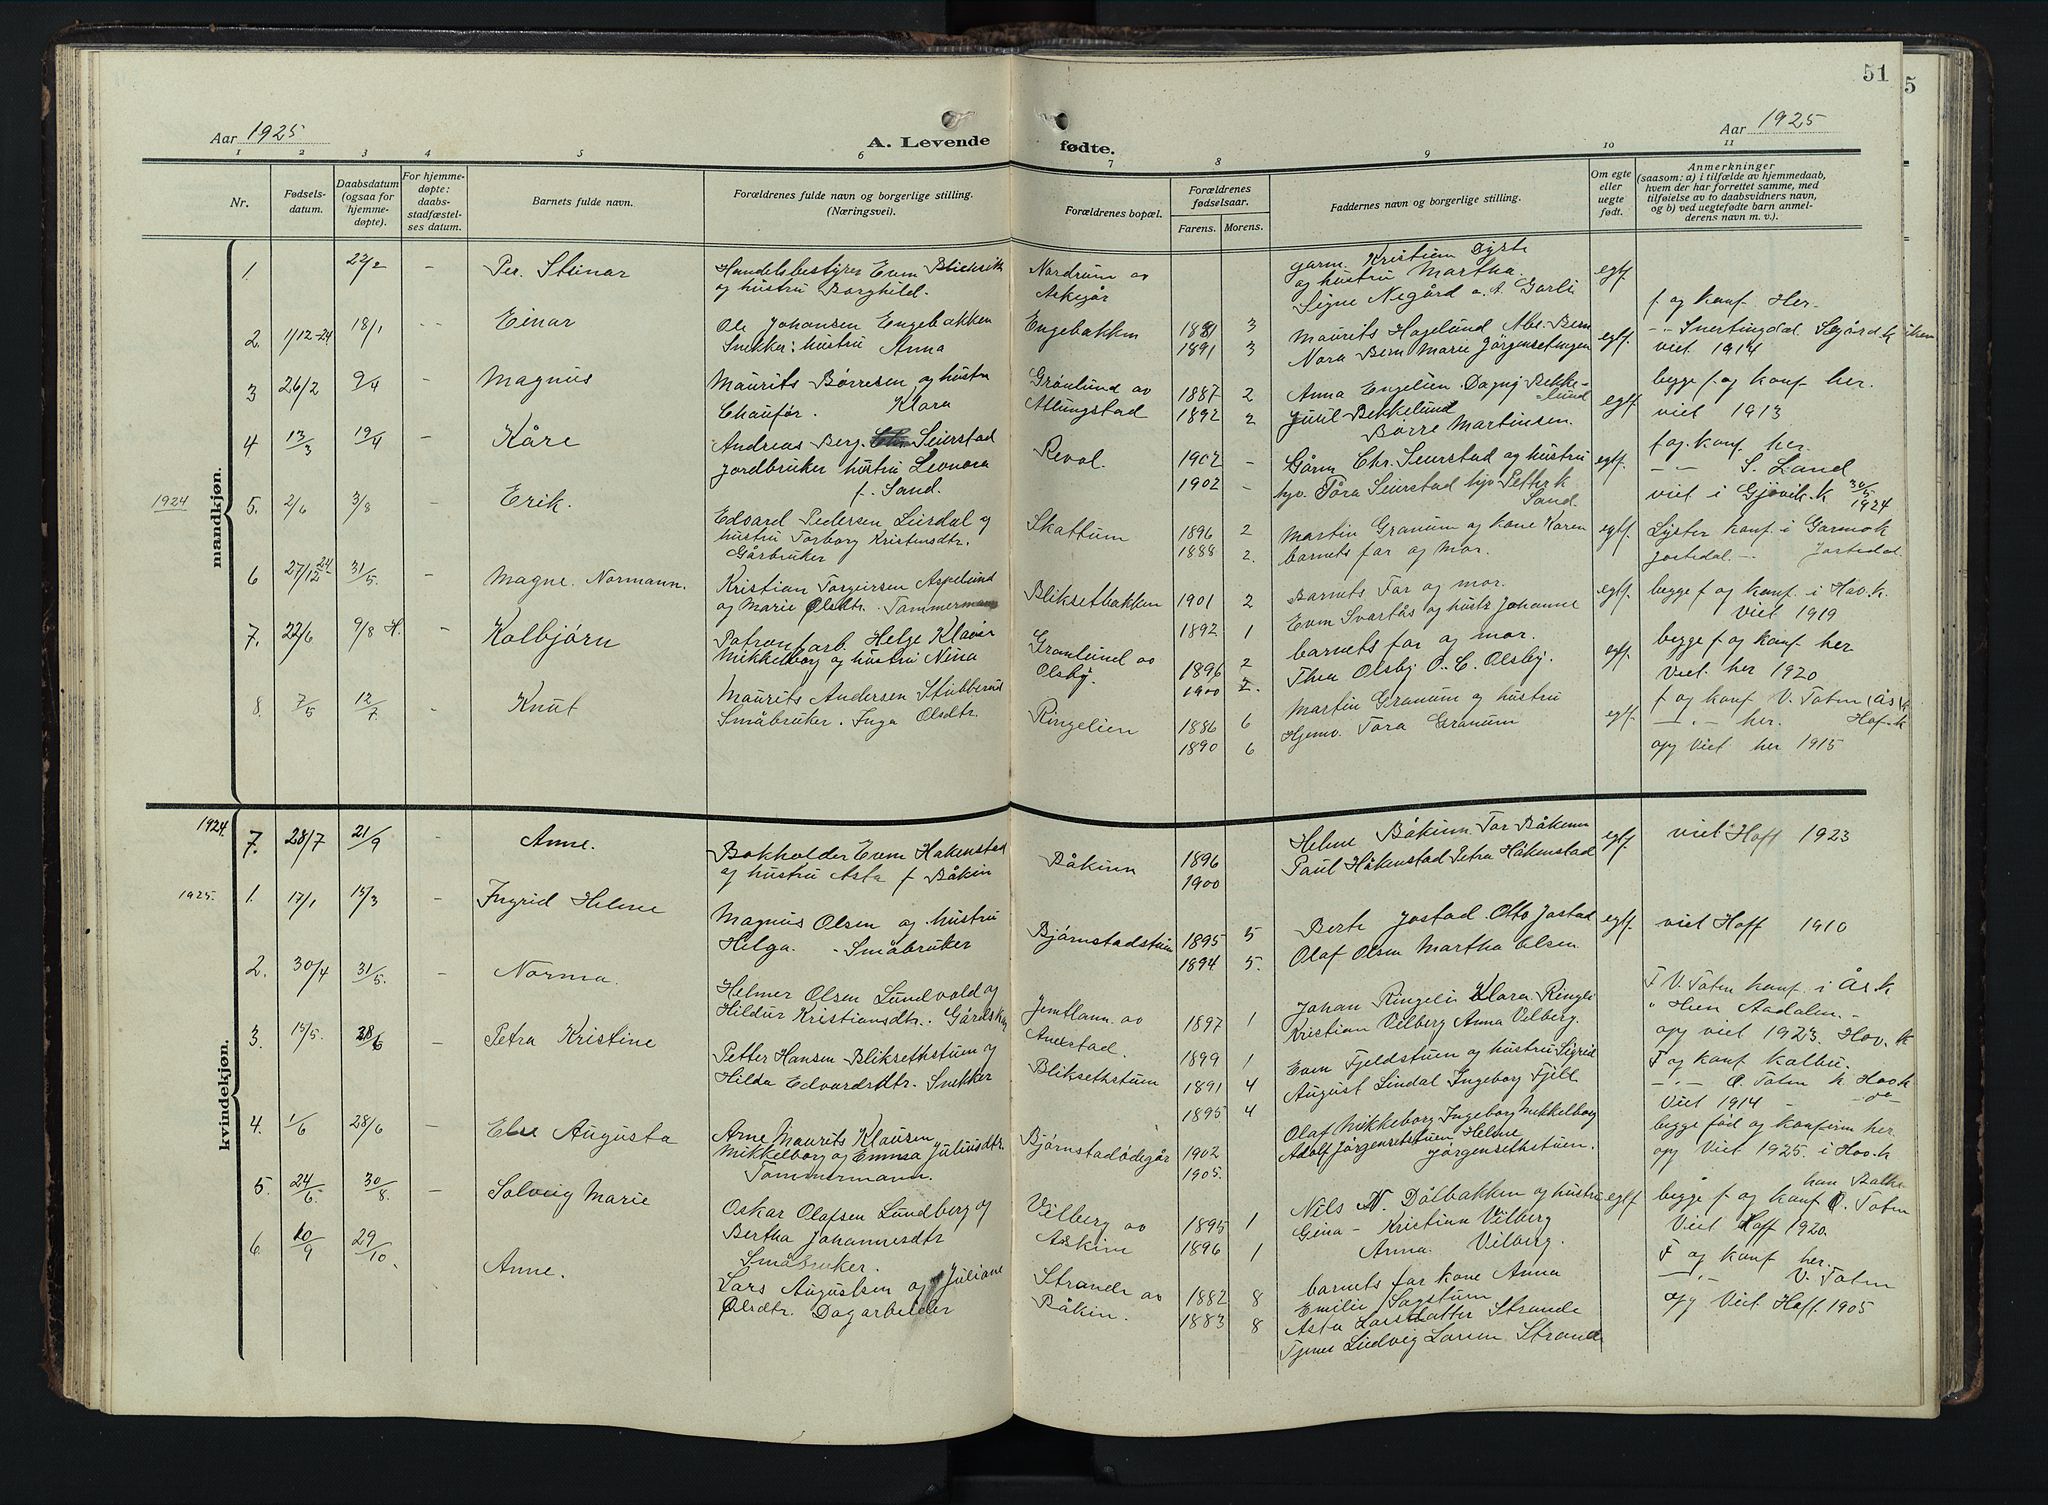 51
5
Aar 1925
A. Levende
fødte.
Aar 1925
1 2 3 4 5 6 7 8 9 10 11
Nr.
Fødsels-
datum.
Daabsdatum
(ogsaa for
hjemme-
døpte).
For hjemme-
døpte:
daabs-
stadfæstel-
ses datum.
Barnets fulde navn.
Forældrenes fulde navn og borgerlige stilling.
(Næringsvei).
Forældrenes bopæl.
Forældrenes
fødselsaar.
Farens. Morens.
Faddernes navn og borgerlige stilling.
Om egte
eller
uegte
født.
Anmerkninger
(saasom: a) i tilfælde av hjemmedaab,
hvem der har forrettet samme, med
tilføielse av to daabsvidners navn,
og b) ved uegtefødte barn anmel-
derens navn m. v.).
mandkjøn.
1. 22/2 - Per. Steinar
Handelsbestyrer Even Bliksett
og hustru Borghild.
Nordrum av
garm. Kristian Dyste
og hustru Martha.
Signe Negård
egtf
2. 1/12-24 18/1 - Einar
Ole Johansen Engebakken
Snekker: hustru Anna
Engebakken
1881 3
1891 3
Maurits Hagelund
Nora Bern Marie
egtf.
f og konf Her-
-"- Snertingdal
viet 1914
3 26/2 9/4 - Magnus
Maurits Børresen og hustru
Chaufør. Klara
Grønlund av
Atlungstad
1887 2
1892 2
Anna Engelien. Dagny Bekke-
lund
Bekkelund
Børre Martinsen.
egtf
begge f og konf her.
viet 1913
4 13/3 19/4 - Kåre
Andreas Berg. Seierstad
Jordbruker hustru Leonora
f. Sand.
Revol.
1902 -
1902 -
Gårm Chr. Seierstad og hustru
Tora Seierstad Petter k
Sand.
egtf
f og. konf her.
-"- S. Land
viet i Gjøvik. k 30/5 1924
1924
5. 2/6 3/8 - Erik.
Edvard Pedersen Leirdal og
hustru Torborg Kristensdtr.
Gårbruker
Skattum
1896 2
1888 2.
Martin Granum og kone Karen
barnets far og mor.
egtf.
Lyster konf. i Garmo k
Jostedal -. Jostedal
6 27/12 24 31/5. - Magne. Normann.
Kristian Torgeirsen Aspelund
og Marie Olsdtr. Tømmermann
Bliksetbakken
1901 2
1892 1
Barnets Far og mor.
Even Svartås og hustr Johanne
egtf.
begge f og konf. i Hov. k.
Viet 1919
7. 22/6 9/8 H. - Kolbjørn
Patronfarb. Helge Klaus
Mikkelborg og hustru Nina
Grønlund av
Olsby.
1896 2
1900 2.
barnets far og mor.
Thea Olsby O. C. Olsby.
egtf
begge f og konf her
Viet. her 1920
8. 7/5 12/7 Knut
Maurits Andersen Stubberud
Småbruker. Inga Olsdtr.
Ringelien
1886 6
1890 6
Martin Granum og hustru
Hjemv. Tora Granum
egtf.
f og konf V. Toten (Ås) k
-"- her. Hof-k
og Viet her 1915
kvindekjøn.
1924. 7. 28/7 21/9 - Anne.
Bokholder Even Håkenstad
og hustru Asta f Båkin
Båkinn
1896
1900
Helene Båkinn. Tor Båkinn
Paul Håkenstad Petra Håkenstad
egtf
viet Hoff 1923
1925. 1. 17/1 15/3 - Ingrid Helene
Magnus Olsen og hustru
Helga. - Småbruker
Bjørnstadstuen
1895 5
1894 5.
Berte Jøstad. Otto Jøstad
Olaf Olsen Martha Olsen.
egtf
viet Hoff 1910
2. 30/4 31/5. - Norma.
Helmer Olsen Lundvold og
Hildur Kristiansdtr. Gårdsk
Jemtlann. av
1897 1
1899 1
Johan Ringeli Klara Ringli
Kristian Vilberg Anna Vilberg.
F V. Toten konf. i Ås. k
" Hen Aadalen. -
og viet 1923. Hov. k
3. 15/5. 28/6 - Petra Kristine
Petter Hansen Bliksethstuen og
Hilda Edvardsdtr. Snekker
Bliksethstuen
1891 4
1895 4
Even Fjeldstuen og hustru Sigrid
August Lindal Ingeborg Fjell
F og konf Kolbu.
-"- Ø. Toten k Hov k
Viet 1914 - do
4. 1/6 28/6 - Else Augusta
Arne Maurits Klausen
Mikkelborg og Emma Juliusdtr.
Tømmermann.
Bjørnstadødegår
1902
1905.
Olaf Mikkelborg Ingeborg Mikkelborg
Adolf Jørgensetstuen Helene
Jørgensethstuen.
begge fød og konfirm her
og Viet 1925. i Hov. k
5. 24/6 30/8. - Solveig Marie
Oskar Olafsen Lundberg og
Bertha Johannesdtr
Småbruker.
Vilberg av
Askim
1895 1
1896 1
Nils N. Dålbakken og hustru
Gina - Kristian Vilberg
Anna. Vilberg.
egtf
han Balke
begge f og konf Ø. Toten
Viet Hoff 1920.
6. 10/9 29/10. Anne.
Lars Augustsen og Juliane
Olsdtr. Dagarbeider
Strande av
Båkin.
1882 8
1883 8
barnets far kone Anna
Emilie Sagstuen
Asta Larsdatter Strande
Tjener Ludvig Larsen Strande
F og konf her.
-"- V. Toten
og Viet Hoff. 1905